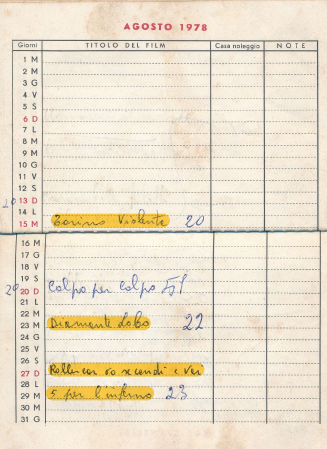 AGOSTO 1978
Giorni TITOLO DEL FILM Casa noleggio NOTE
1 M
2 M
3 G
4 V
5 S
6 D
7 L
8 M
9 M
10 G
11 V
12 S
20 13 D
14 L
15 M Torino Violenta 20
16 M
17 G
18 V
19 S
20 20 D Colpo per colpo
21 L
22 M
23 M Diamante Lobo 22
24 G
25 V
26 S
27 D Rollercar 60 secondi e vai
28 L
29 M 5 per l'inferno 23
30 M
31 G